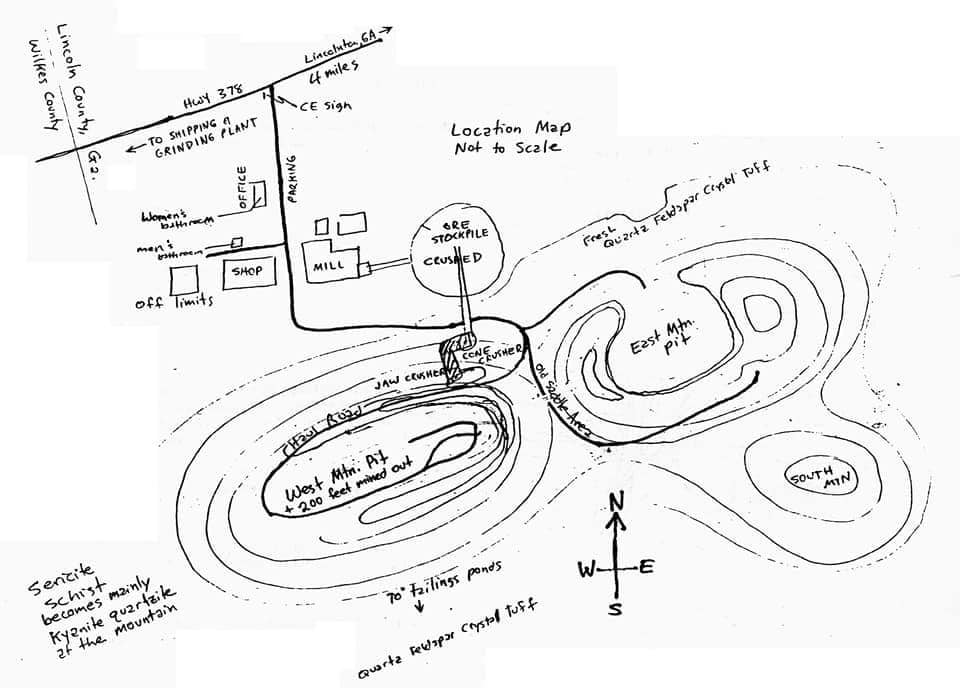 Lincoln County, Ga.
Wilkes County
Lincolnton, GA
4 miles
HWY 378
CE Sign
TO SHIPPING &
GRINDING PLANT
Location Map
Not to Scale
OFFICE
PARKING
Women's
bathroom
men's
bathroom
SHOP
off limits
MILL
ORE
STOCKPILE
CRUSHED
Fresh
Quartz Feldspar Crystl Tuff
East Mtn.
pit
CONE
CRUSHER
JAW CRUSHER
Old Saddle Area
Haul Road
West Mtn. Pit
+ 200 feet mined out
SOUTH
MTN
N
W E
S
70° tailings ponds
Quartz Feldspar Crystl Tuff
Sericite
schist
becomes mainly
Kyanite quartzite
at the mountain